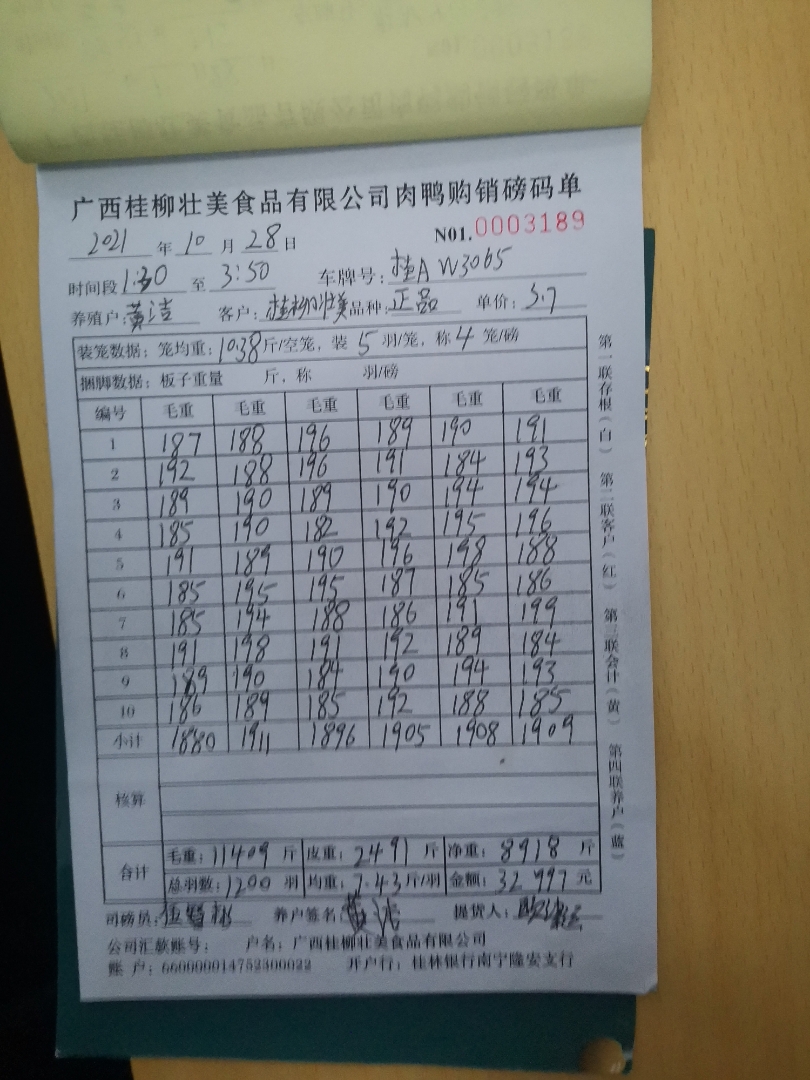 广西桂柳壮美食品有限公司肉鸭购销磅码单
2021 年 10 月 28 日 N01.0003189
时间段 1:30 至 3:50 车牌号: 桂A W3065
养殖户: 黄洁 客户: 桂柳壮美 品种: 正品 单价: 3.7
装笼数据: 笼均重: 10.38 斤/空笼, 装 5 羽/笼, 称 4 笼/磅
捆脚数据: 板子重量 斤, 称 羽/磅
编号 毛重 毛重 毛重 毛重 毛重 毛重
1 187 188 196 189 190 191
2 192 188 196 191 184 193
3 189 190 189 190 194 194
4 185 190 182 192 195 196
5 191 189 190 196 198 188
6 185 195 195 187 185 186
7 185 194 188 186 191 199
8 191 198 191 192 189 184
9 189 190 184 190 194 193
10 186 189 185 192 188 185
小计 1880 1911 1896 1905 1908 1909
核算
合计 毛重: 11409 斤 皮重: 2491 斤 净重: 8918 斤
总羽数: 1200 羽 均重: 7.43 斤/羽 金额: 32997 元
司磅员: 养户签名: 黄洁 提货人:
公司汇款账号: 户名: 广西桂柳壮美食品有限公司
账户: 660000014752300022 开户行: 桂林银行南宁隆安支行
第一联存根(白) 第二联客户(红) 第三联会计(黄) 第四联养户(蓝)